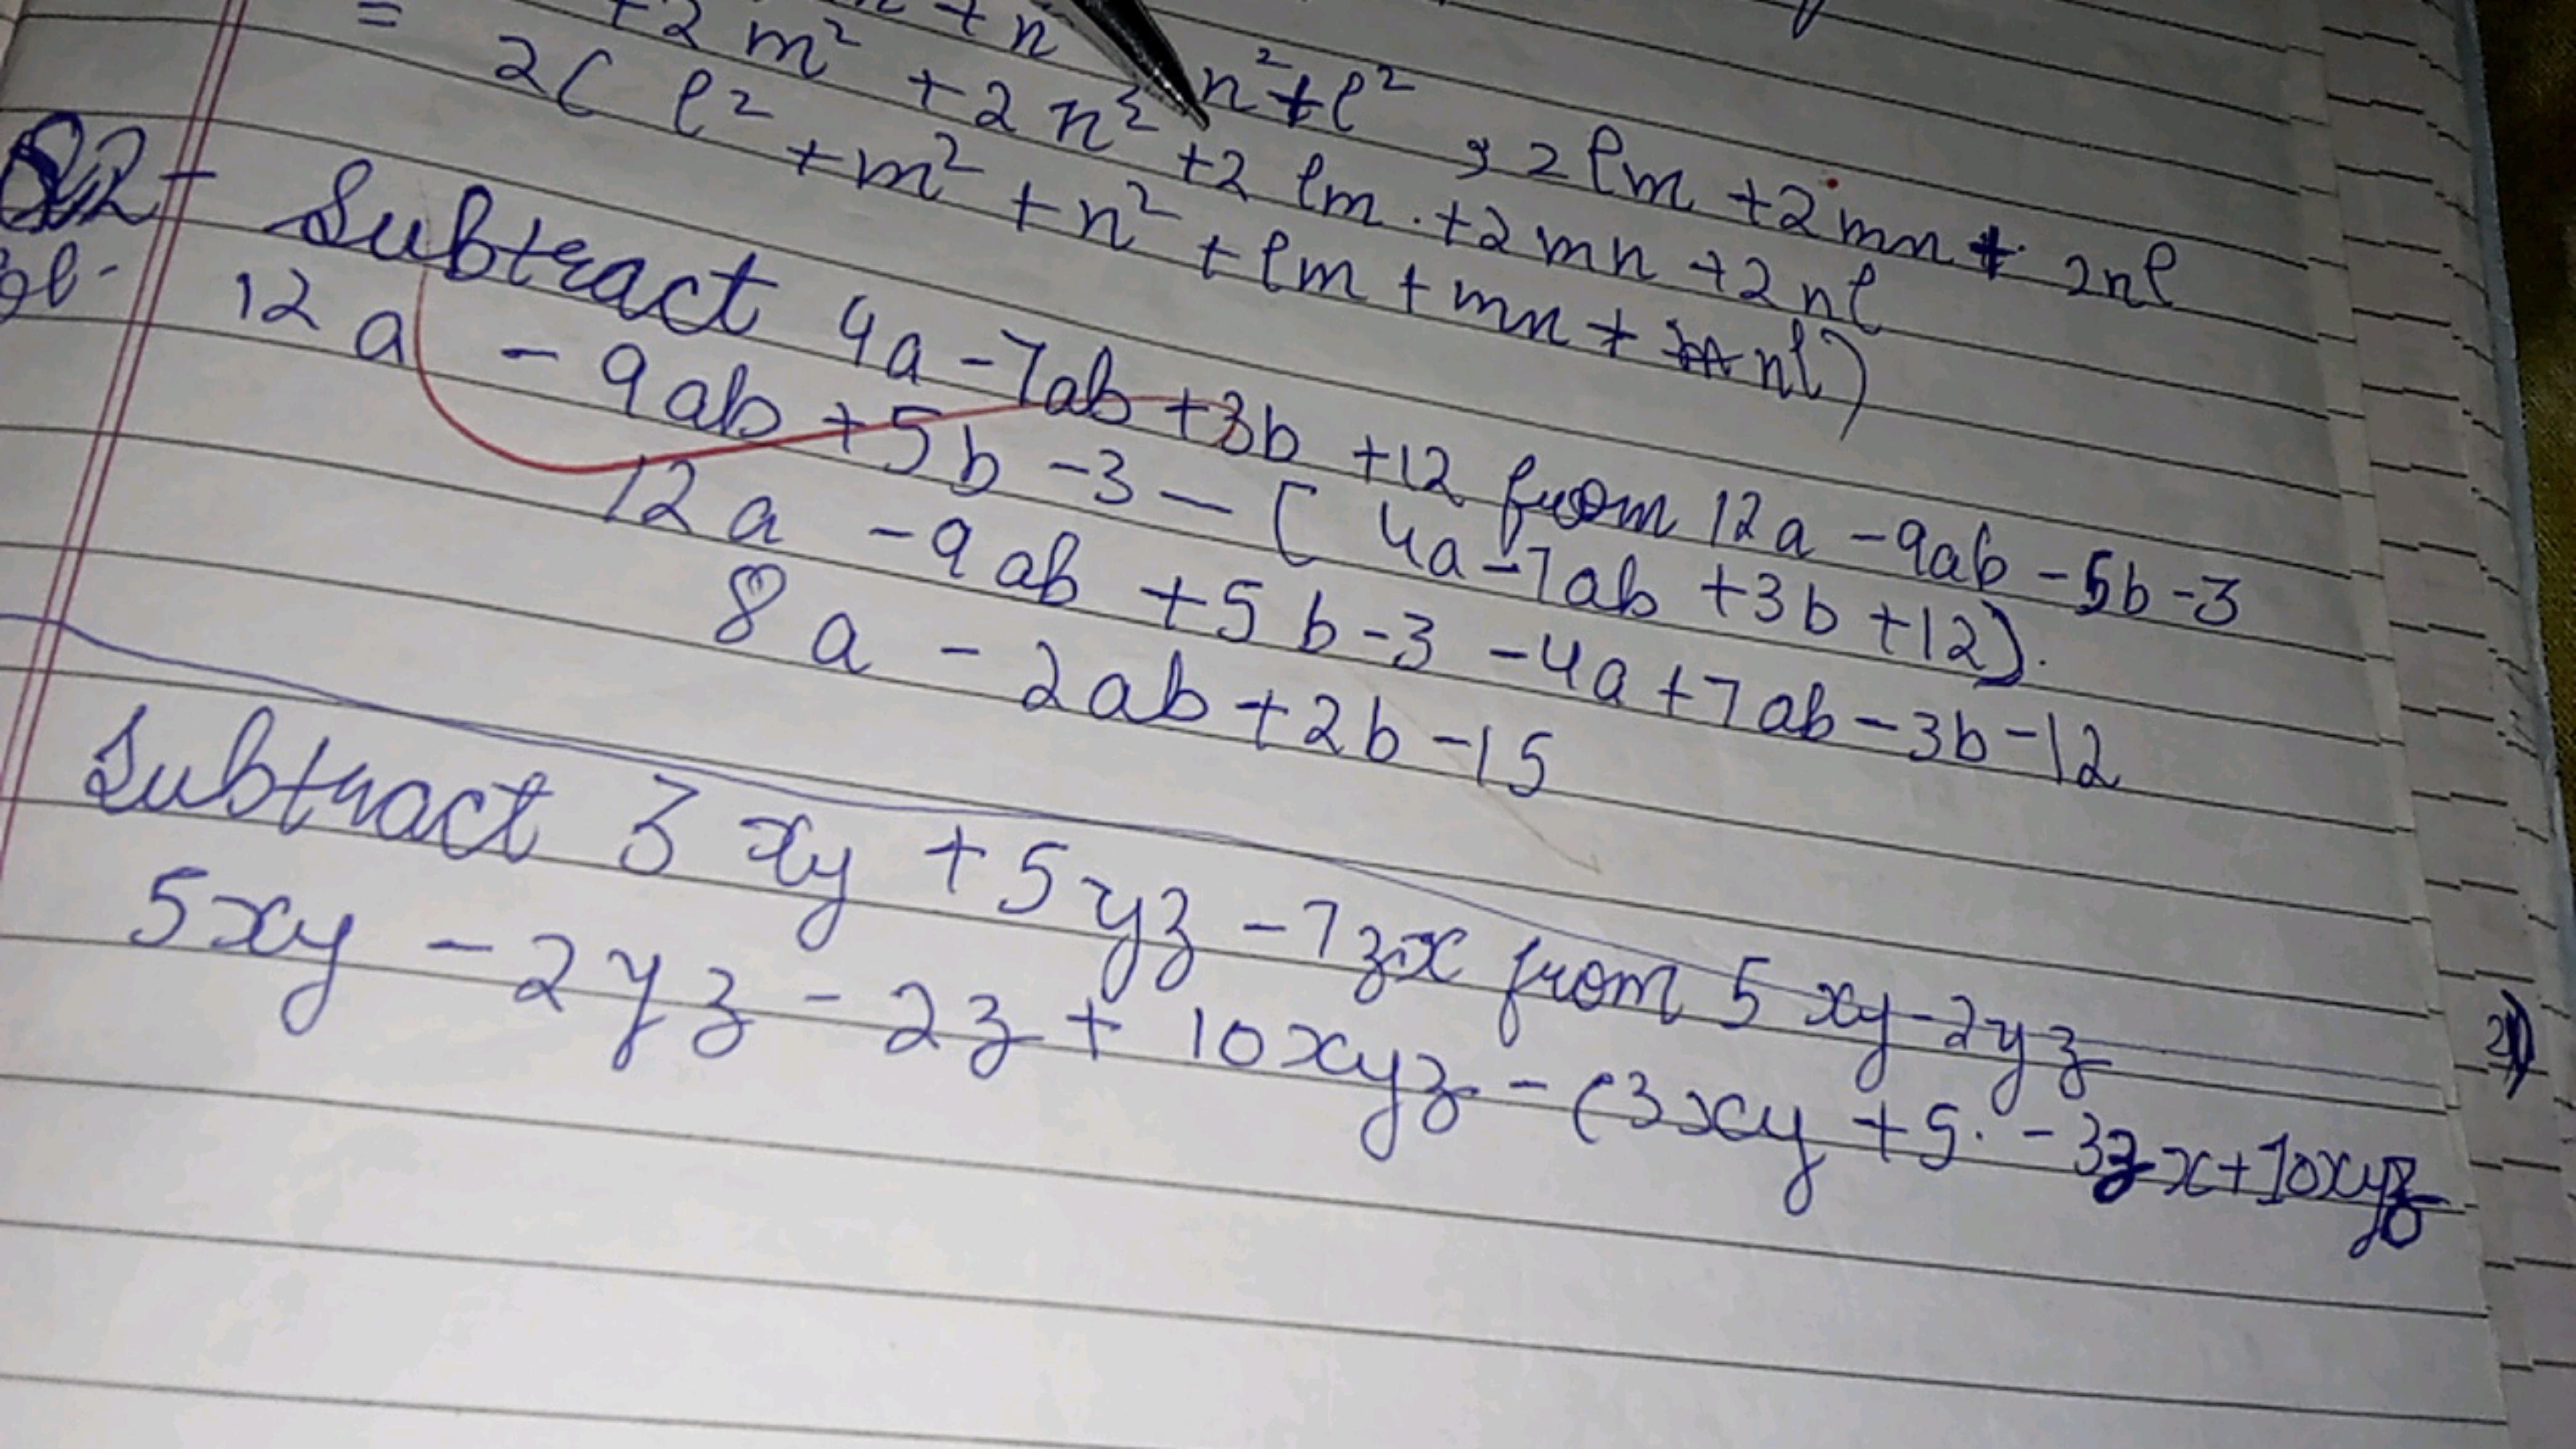 = +2m² +2n² +2lm . +2mn +2nl
n²+l² , 2lm +2mn + 2nl
2( l² +m² +n² +lm +mn + nl)
Q2- Subtract 4a -7ab +3b +12 from 12a -9ab -5b -3
12a - 9ab +5b -3 - ( 4a -7ab +3b +12).
12a -9ab +5b -3 -4a +7ab -3b -12
8a - 2ab +2b -15
Subtract 3xy +5yz -7zx from 5xy -2yz -3zx +10xyz
5xy - 2yz - 2z + 10xyz - (3xy +5.
2)